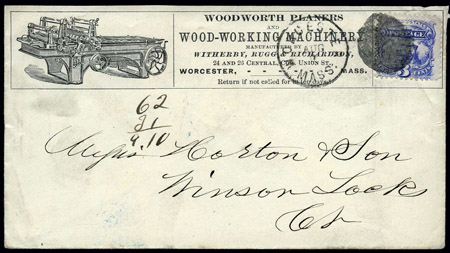 WOODWORTH PLANERS
AND
WOOD-WORKING MACHINERY
MANUFACTURED BY
WITHERBY, RUGG & RICHARDSON,
24 AND 25 CENTRAL, COR. UNION ST.,
WORCESTER, - - MASS.
Return if not called for in
AUG
MASS.
POSTAGE
3
62
21
9.10
Messrs Horton & Son
Winsor Locks
Ct